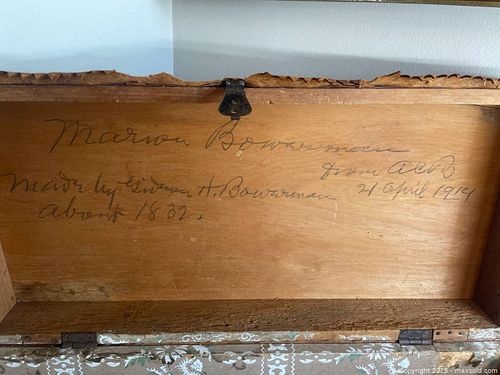 Marion Bowerman
from ACB
21 April 1914
Made by Gideon H. Bowerman
about 1832.
Copyright 2025 - maxsold.com